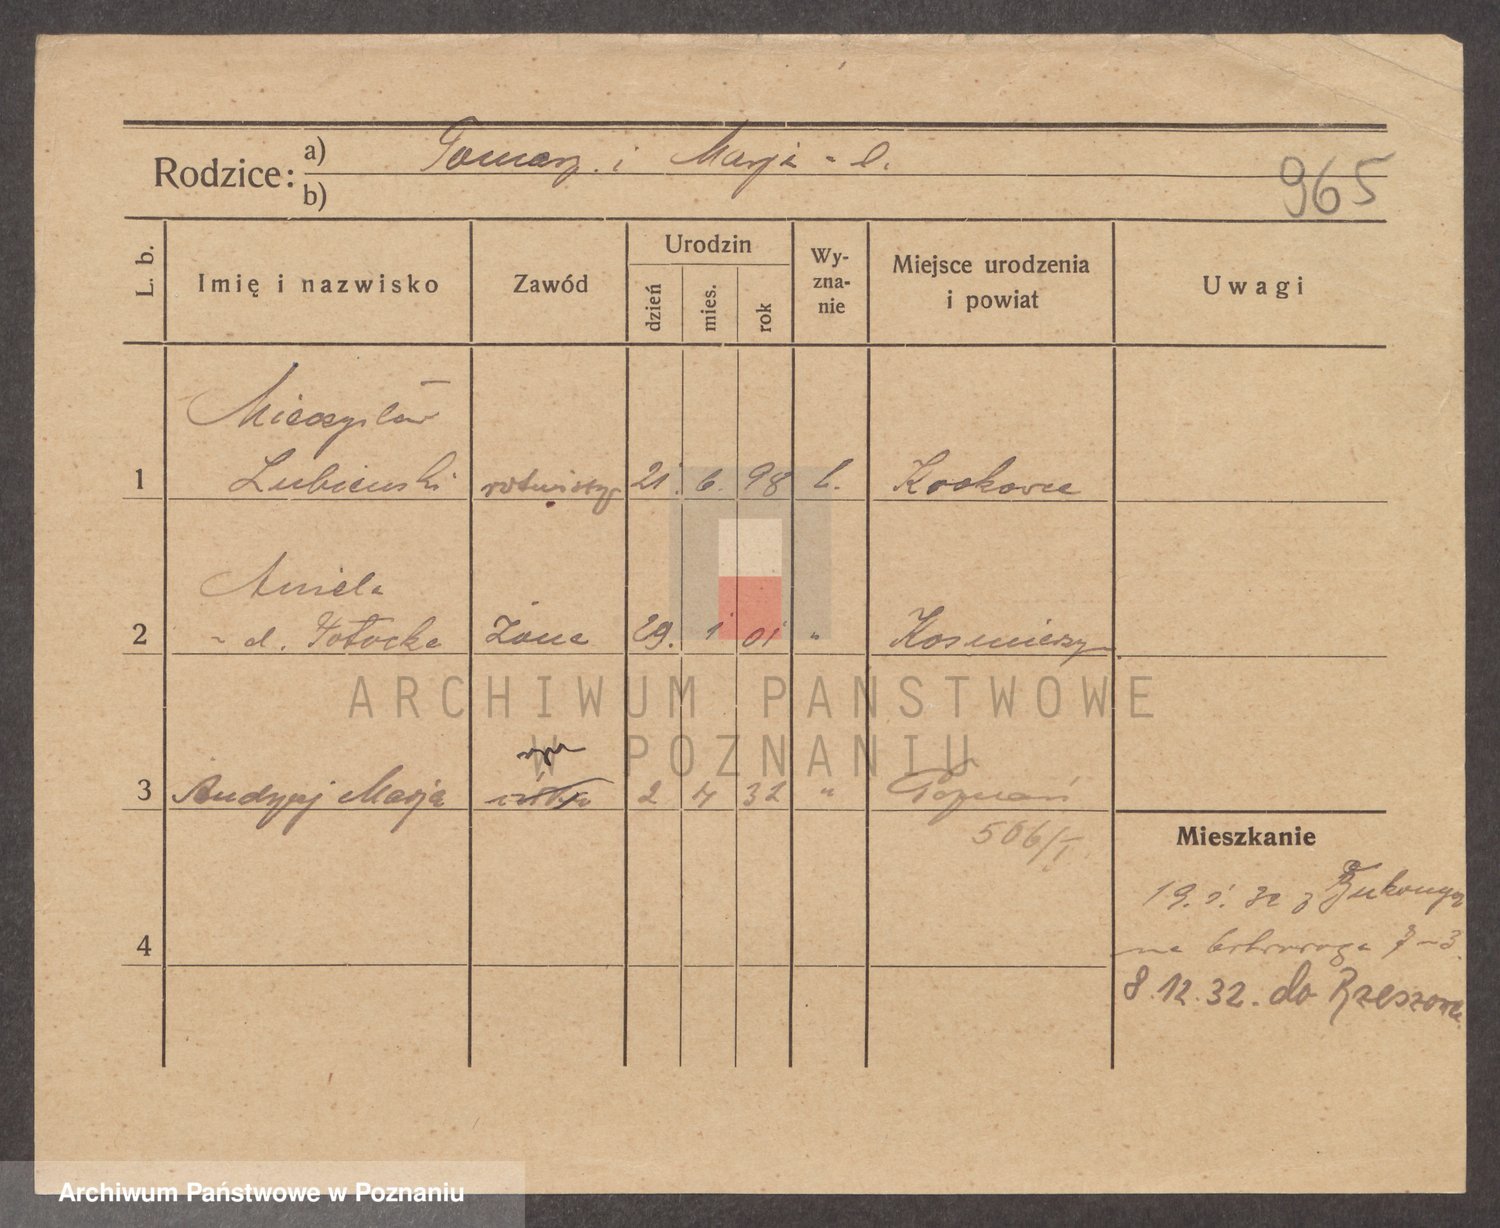 Rodzice:
a) Tomasz i Marja - l.
b)
965
L. b.
Imię i nazwisko
Zawód
Urodzin
dzień
mies.
rok
Wy-
zna-
nie
Miejsce urodzenia
i powiat
Uwagi
Mieczysław
1 Lubieński rotmistrz 21. 6. 98 k. Krakowie
Aniela
2 - d. Potocka Żona 29. 1 01 "
3 Andrzej Marja 2 4 32 " Poznań
566/I
Mieszkanie
19. 1. 32 z
na 7-3
4
8.12.32. do Rzeszowa
ARCHIWUM PAŃSTWOWE
W POZNANIU
Archiwum Państwowe w Poznaniu